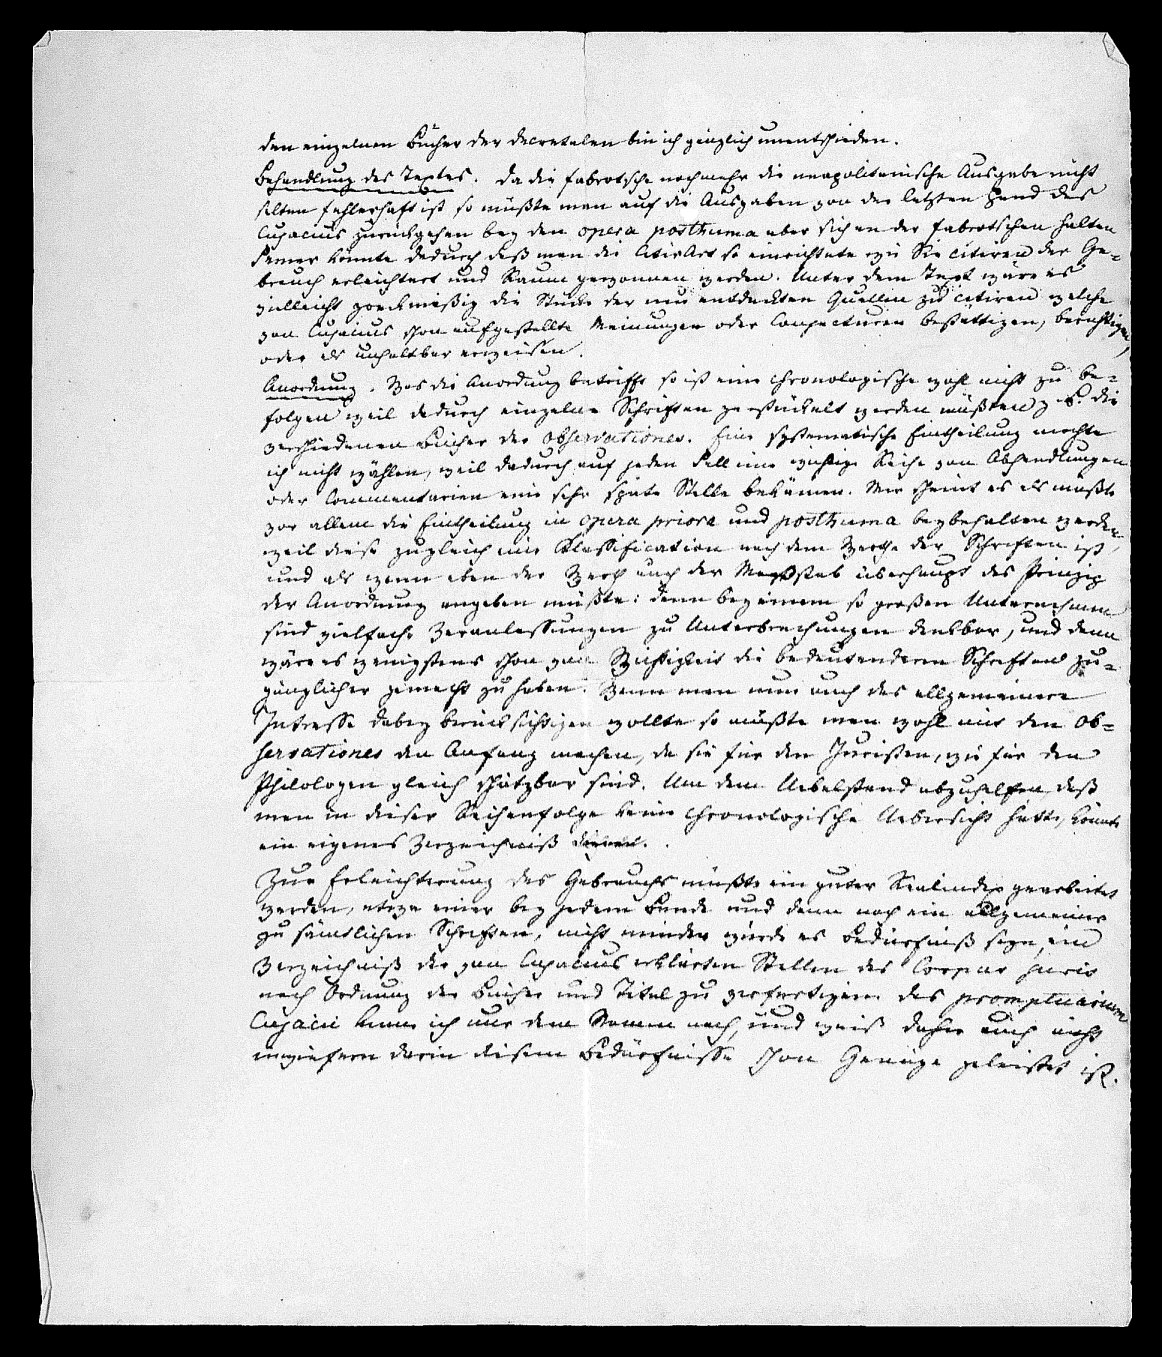 den einzelnen Bücher der Decretalen bin ich gänzlich unentschieden.
Behandlung des Textes. Da die fabrotsche noch mehr die neapolitanische Ausgabe nicht
selten fehlerhaft ist so müßte man auf die Ausgaben von der letzten Hand des
Cujacius zurückgehen bey den opera posthuma aber sich an der fabrotschen halten
Ferner könnte dadurch daß man die Citirart so einrichtete wie Sie citiren der Ge-
brauch erleichtert und Raum gewonnen werden. Unter dem Text wäre es
vielleicht zweckmäßig die Stücke der neu entdeckten Quellen zu citiren welche
von Cujacius schon aufgestellte Meinungen oder Conjecturen bestättigen, berichtigen,
oder als unhaltbar erweisen.
Anordnung. Was die Anordnung betrifft so ist eine chronologische wohl nicht zu be-
folgen weil dadurch einzelne Schriften zerstückelt werden müßten z. B. die
verschiedenen Bücher der observationes. Eine systematische Eintheilung mochte
ich nicht wählen, weil dadurch auf jeden Fall eine wichtige Reihe von Abhandlungen
oder Commentarien eine sehr späte Stelle bekämen. Mir scheint es als müßte
vor allem die Eintheilung in opera priora und posthuma beybehalten werden,
weil diese zugleich eine Klassification nach dem Werthe der Schriften ist,
und als wenn eben der Werth auch der Maßstab überhaupt das Prinzip
der Anordnung angeben müßte: denn bey einem so großen Unternehmen
sind vielfache Veranlassungen zu Unterbrechungen denkbar, und dann
wäre es wenigstens schon von Wichtigkeit die bedeutendern Schriften zu-
gänglicher gemacht zu haben. Wenn man nun auch das allgemeinere
Intresse dabey berücksichtigen wollte so müßte man wohl mit den ob-
servationes den Anfang machen, da sie für den Juristen, wie für den
Philologen gleich schätzbar sind. Um dem Uebelstand abzuhelfen daß
man in dieser Reihenfolge keine chronologische Uebersicht hätte, könnte
ein eigenes Verzeichniß dienen.
Zur Erleichterung des Gebrauchs müßte ein guter Realindex gearbeitet
werden, etwa einer bey jedem Bande und dann noch ein allgemeiner
zu sämtlichen Schriften, nicht minder würde es Bedürfniß seyn, ein
Verzeichniß der von Cujacius erklärten Stellen des Corpus juris
nach Ordnung der Bücher und Titel zu verfertigen. Das promptuarium
Cujacii kenne ich nur dem Namen nach, und weiß daher auch nicht
inwiefern darin diesem Bedürfnisse schon Genüge geleistet ist.